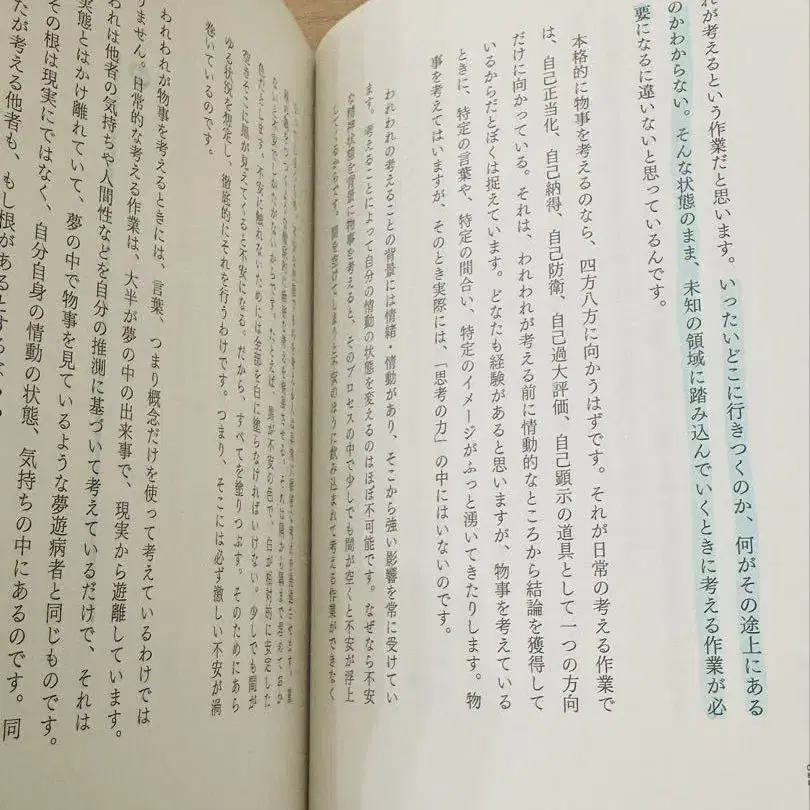 れが考えるという作業だと思います。いったいどこに行きつくのか、何がその途上にある
のかわからない。そんな状態のまま、未知の領域に踏み込んでいくときに考える作業が必
要になるに違いないと思っているんです。
本格的に物事を考えるのなら、四方八方に向かうはずです。それが日常の考える作業で
は、自己正当化、自己納得、自己防衛、自己過大評価、自己顕示の道具として一つの方向
だけに向かっている。それは、われわれが考える前に情動的なところから結論を獲得して
いるからだとぼくは捉えています。どなたも経験があると思いますが、物事を考えている
ときに、特定の言葉や、特定の間合い、特定のイメージがふっと湧いてきたりします。物
事を考えてはいますが、そのとき実際には、「思考の力」の中にはいないのです。
われわれの考えることの背景には情緒・情動があり、そこから強い影響を常に受けてい
ます。考えることによって自分の情動の状態を変えるのはほぼ不可能です。なぜなら不安
な精神状態を背景に物事を考えると、そのプロセスの中で少しでも間が空くと不安が浮上
してくるからです。間を空けてしまうと不安のほうに飲み込まれて考える作業ができなく
ないと不安でしかたがないからです。たとえば、黒が不安の色で、白が相対的に安定した
色だとします。不安に触れないためには全部を白に塗らなければいけない。少しでも間が
空きそこに黒が見えてくると不安になる。だから、すべてを塗りつぶす。そのためにあら
ゆる状況を想定し、徹底的にそれを行うわけです。つまり、そこには必ず激しい不安が渦
巻いているのです。
われわれが物事を考えるときには、言葉、つまり概念だけを使って考えているわけでは
りません。日常的な考える作業は、大半が夢の中の出来事で、現実から遊離しています。
われは他者の気持ちや人間性などを自分の推測に基づいて考えているだけで、それは
実態とはかけ離れていて、夢の中で物事を見ているような夢遊病者と同じものです。
その根は現実にではなく、自分自身の情動の状態、気持ちの中にあるのです。同
たが考える他者も、もし根があるとする